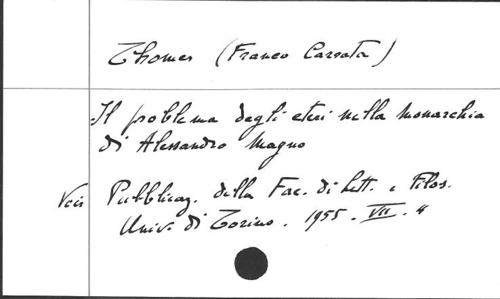 Thomes (Franco Carrata)
Il problema degli eteri nella monarchia
di Alessandro Magno
Voir Pubblicaz. della Fac. di Lett. e Filos.
Univ. di Torino. 1955. VII. 4